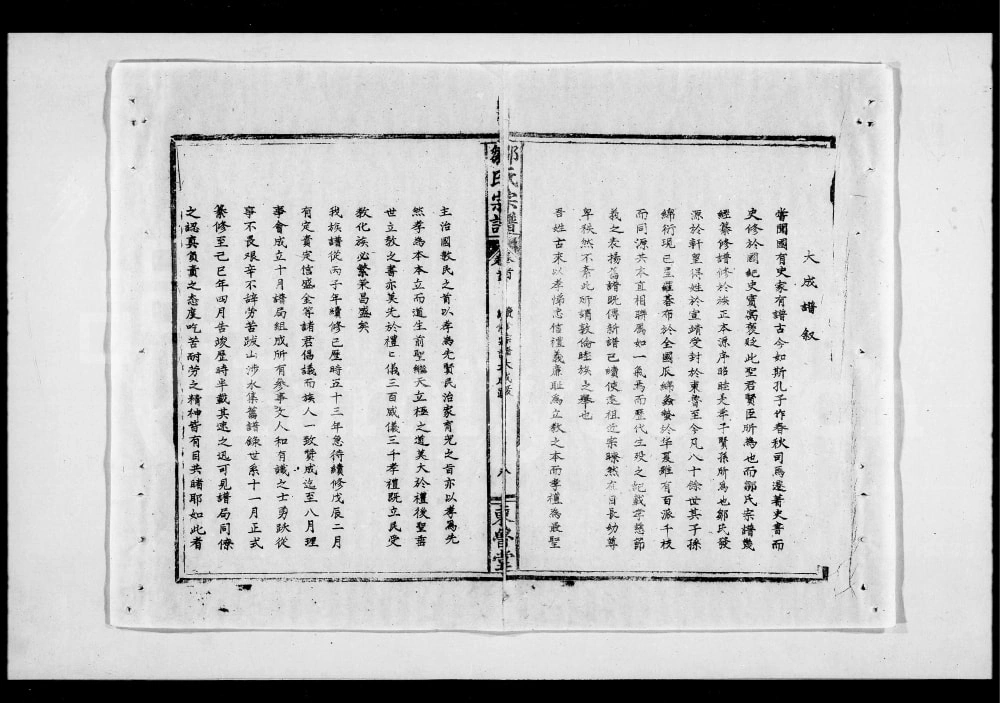 大成譜叙
嘗聞國有史家有譜古今如斯孔子作春秋司馬遷著史書而
史修於國紀史實寓褒貶此聖君賢臣所為也而鄒氏宗譜幾
經纂修譜修於族正本源序昭穆是孝子賢孫所為也鄒氏發
源於軒皇得姓於宣靖受封於東魯至今凡八十餘世其子孫
綿衍現已星羅碁布於全國瓜綿螽蟄於华夏雖有百派千枝
而同源共本直相聯属如一氣焉而歷代生殁之紀載孝慈節
義之表揚舊譜既傳新譜已續使遠祖近宗瞭然在目長幼尊
卑秩然不紊此所謂敦倫睦族之舉也
吾姓古來以孝悌忠信禮義廉耻為立教之本而孝禮為最聖
鄒氏宗譜
卷首
八
東魯堂
主治國教民之首以孝為先賢民治家育児之旨亦以孝為先
然孝為本本立而道生前聖繼天立極之道莫大於禮後聖垂
世立教之書亦莫先於禮礼儀三百威儀三千孝禮既立民受
教化族必繁荣昌盛矣
我族譜從丙子年續修已歷時五十三年急待續修戊辰二月
有定貴定信盛全等諸君倡議而族人一致赞成迄至八月理
事會成立十月譜局組成所有參事文人和有識之士勇跃從
事不畏艰辛不辞劳苦跋山涉水集舊譜錄世系十一月正式
纂修至己巳年四月告竣歷時半載其速之迅可見譜局同僚
之認真負責之态度吃苦耐劳之精神皆有目共睹耶如此者